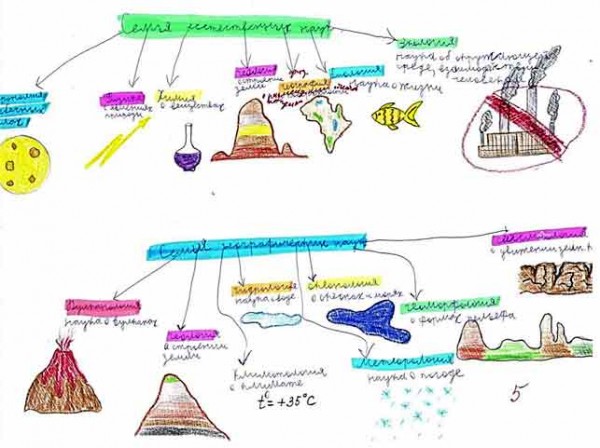 Семья естественных наук
Физика
о явлениях
природы
Химия
о веществах
Геология
о строении
земли
физ.
география
Биология
наука о жизни
Экология
наука об окружающей
среде, взаимодействии
человека
Семья географических наук
Вулканология
наука о вулканах
Геология
о строении
земли
Климатология
о климате
t°=+35°C
Гидрология
наука о воде
Океанология
о океанах и морях
Геоморфология
о формах рельефа
Метеорология
наука о погоде
о движении земн. к
5